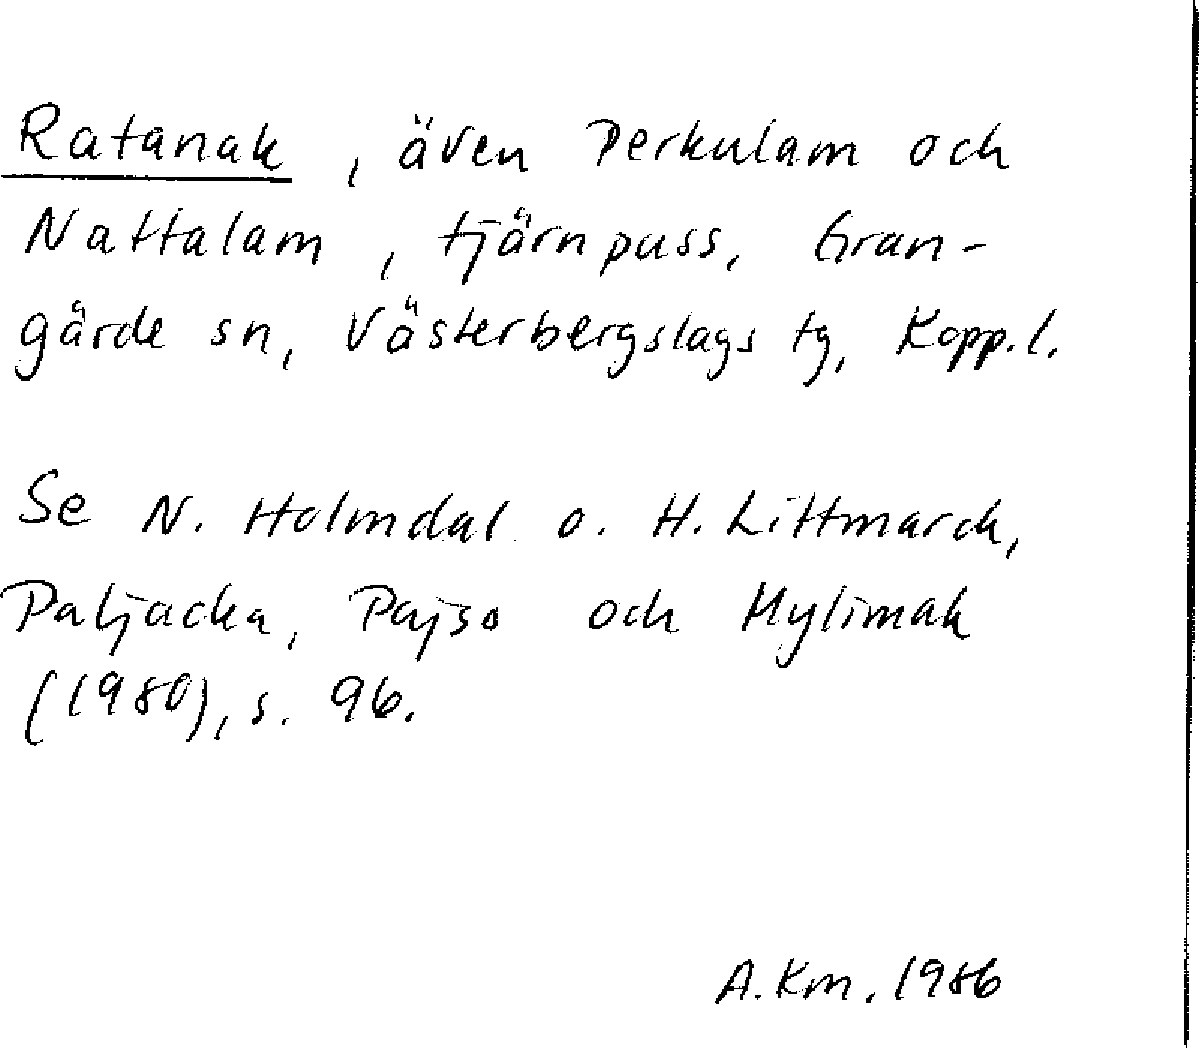 Ratanak, även Perkulam och
Nattalam, tjärnpuss, Gran-
gärde sn, Västerbergslags tg, Kopp.l.
Se N. Holmdal o. H. Littmarck,
Paljacka, Pajso och Hylimak
(1980), s. 96.
A.Km. 1986